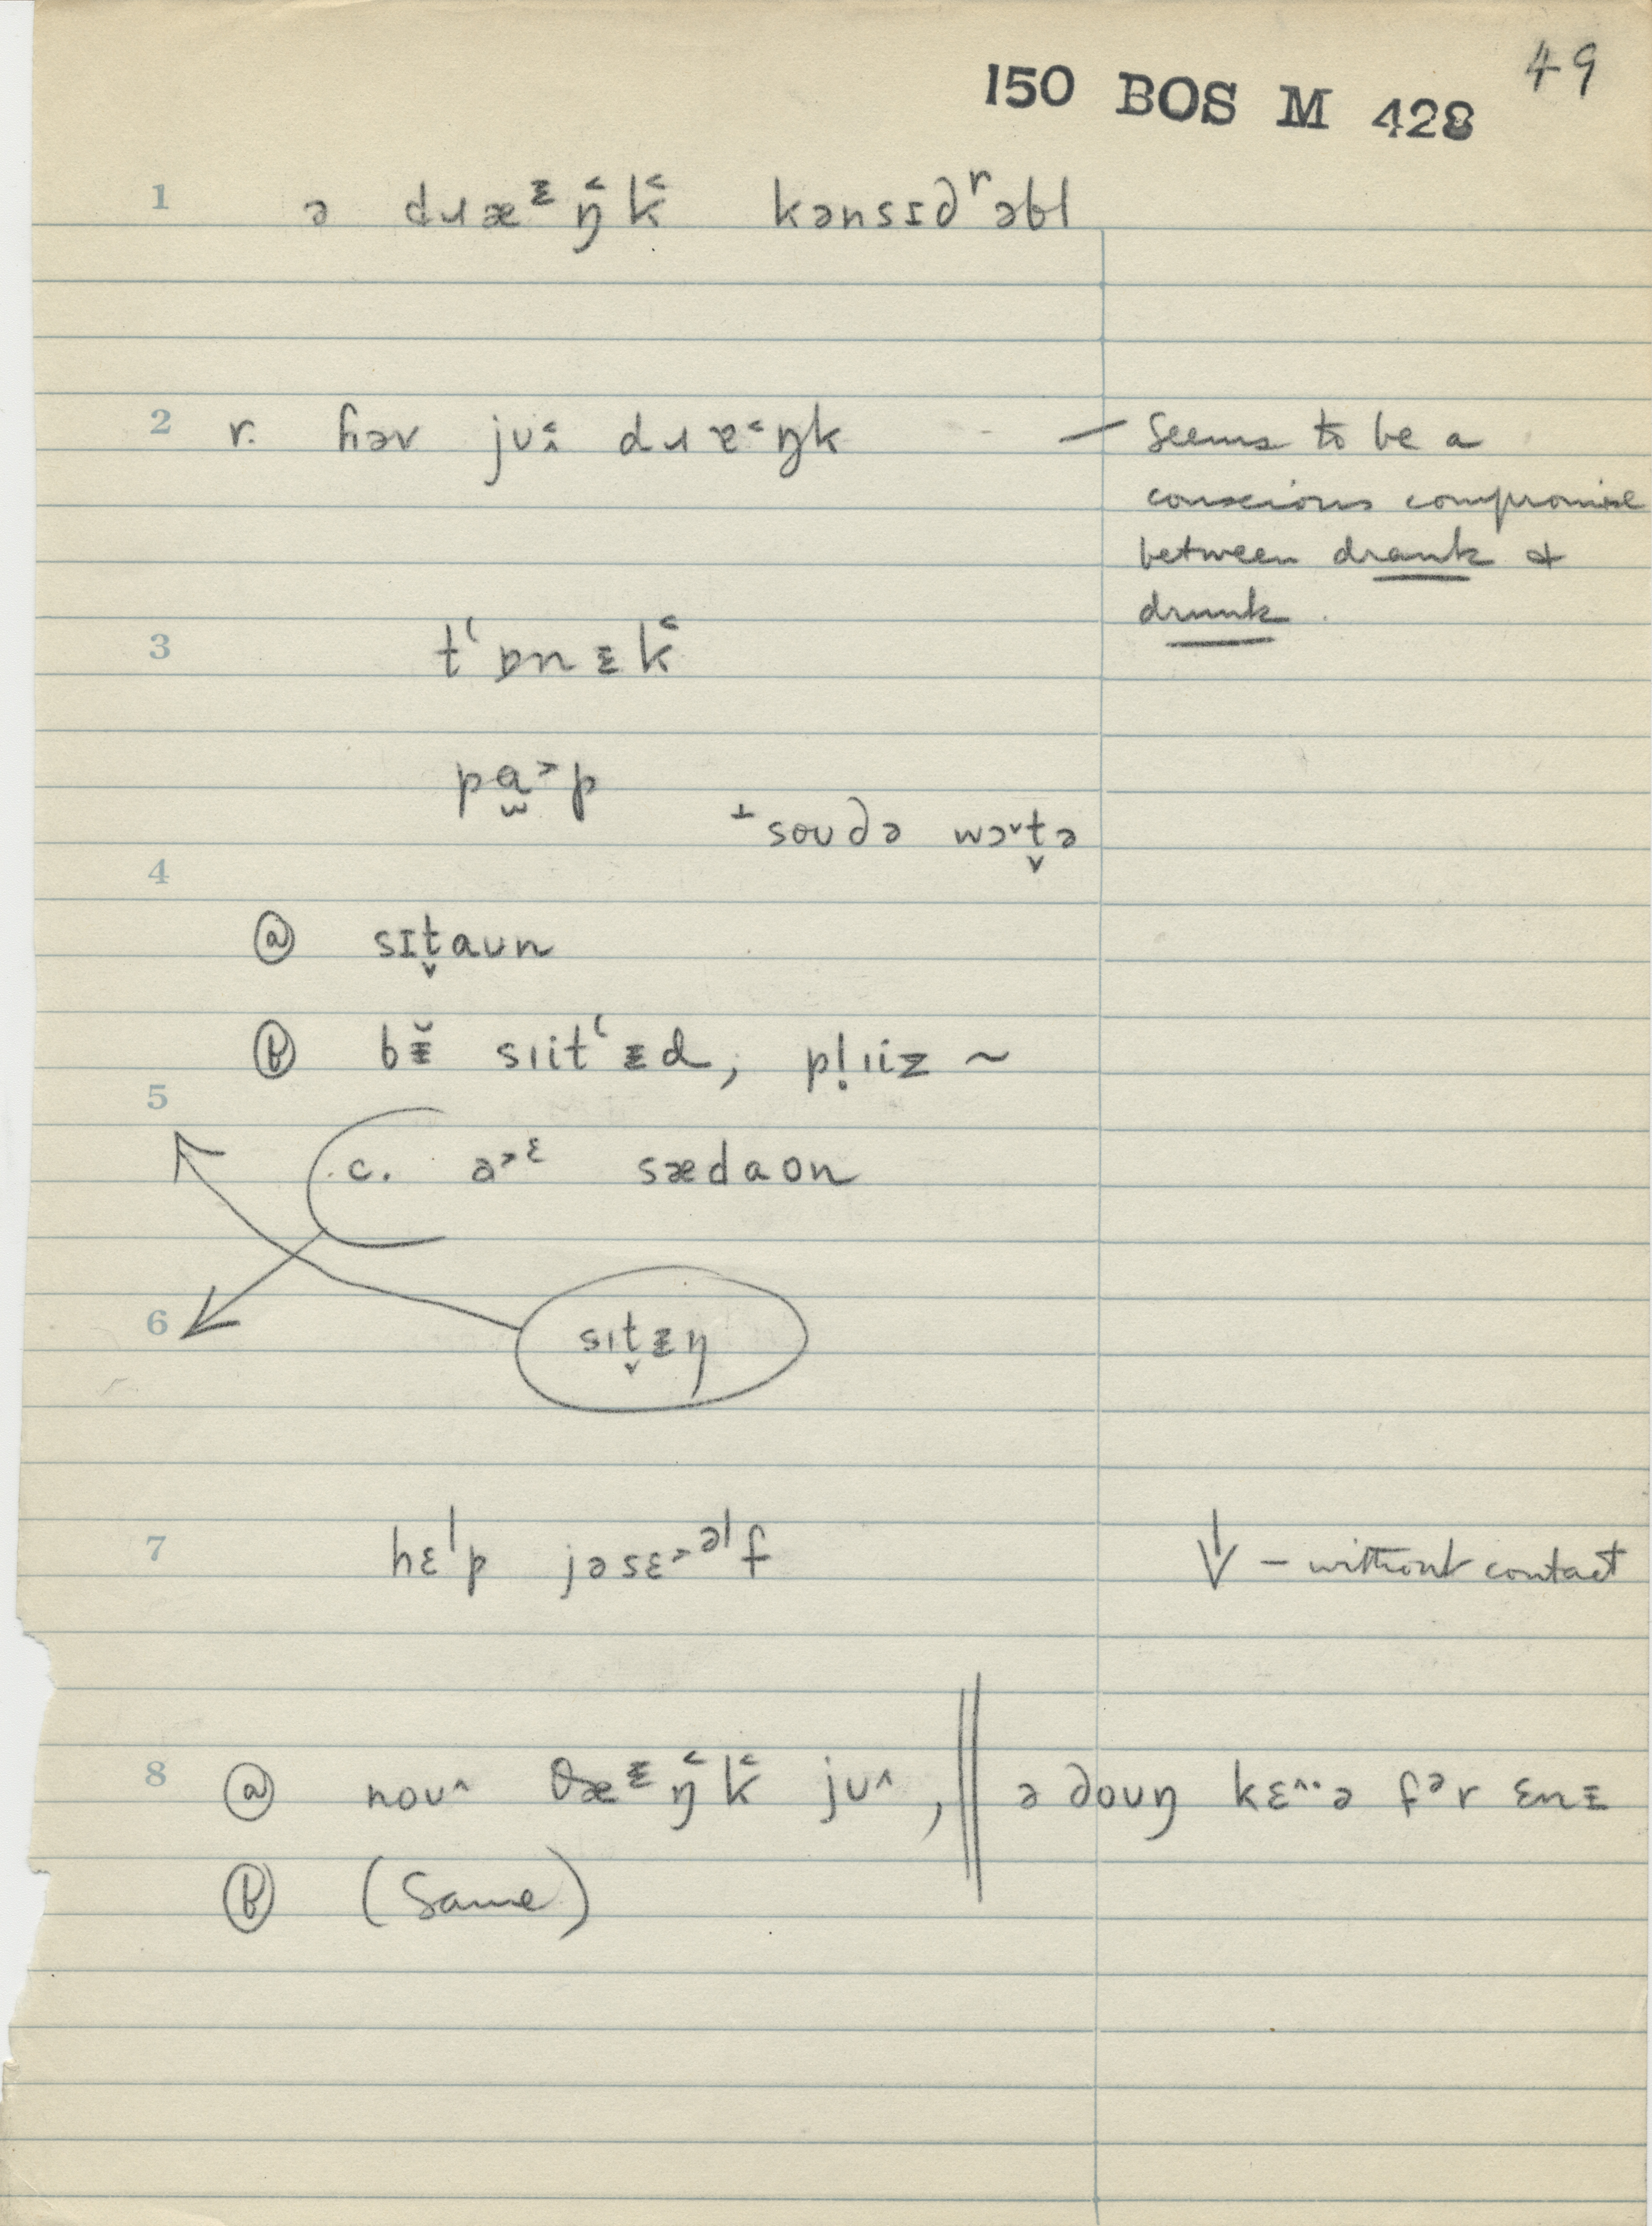 49
150 BOS M 428
1 ə dɹæᵻŋ̂k̂ kənsɪd̯ʳəbl
2 r. ɦəv jʊ˂ː dɹɐ˂ŋk — Seems to be a
conscious compromise
between drank &
drunk.
3 tʻɒnᵻk̂
pɑ̫˃p
⊥soʊdə wɔ˅t̬ə
4
ⓐ sɪt̬aʊn
ⓑ bᵻ̆ sɪitʻᵻd, pl̥ɪiz ~
5
c. a˃ᵋ sædaon
6 sɪt̬ᵻŋ
7 hɛˡp jəsɛ˃ᵊˡf ↓ – without contact
8 ⓐ noʊ^ θæᵻŋ̂k̂ jʊ^, ‖ ə doʊŋ kɛ^·ə fᵊr ɛnᵻ
ⓑ (Same)